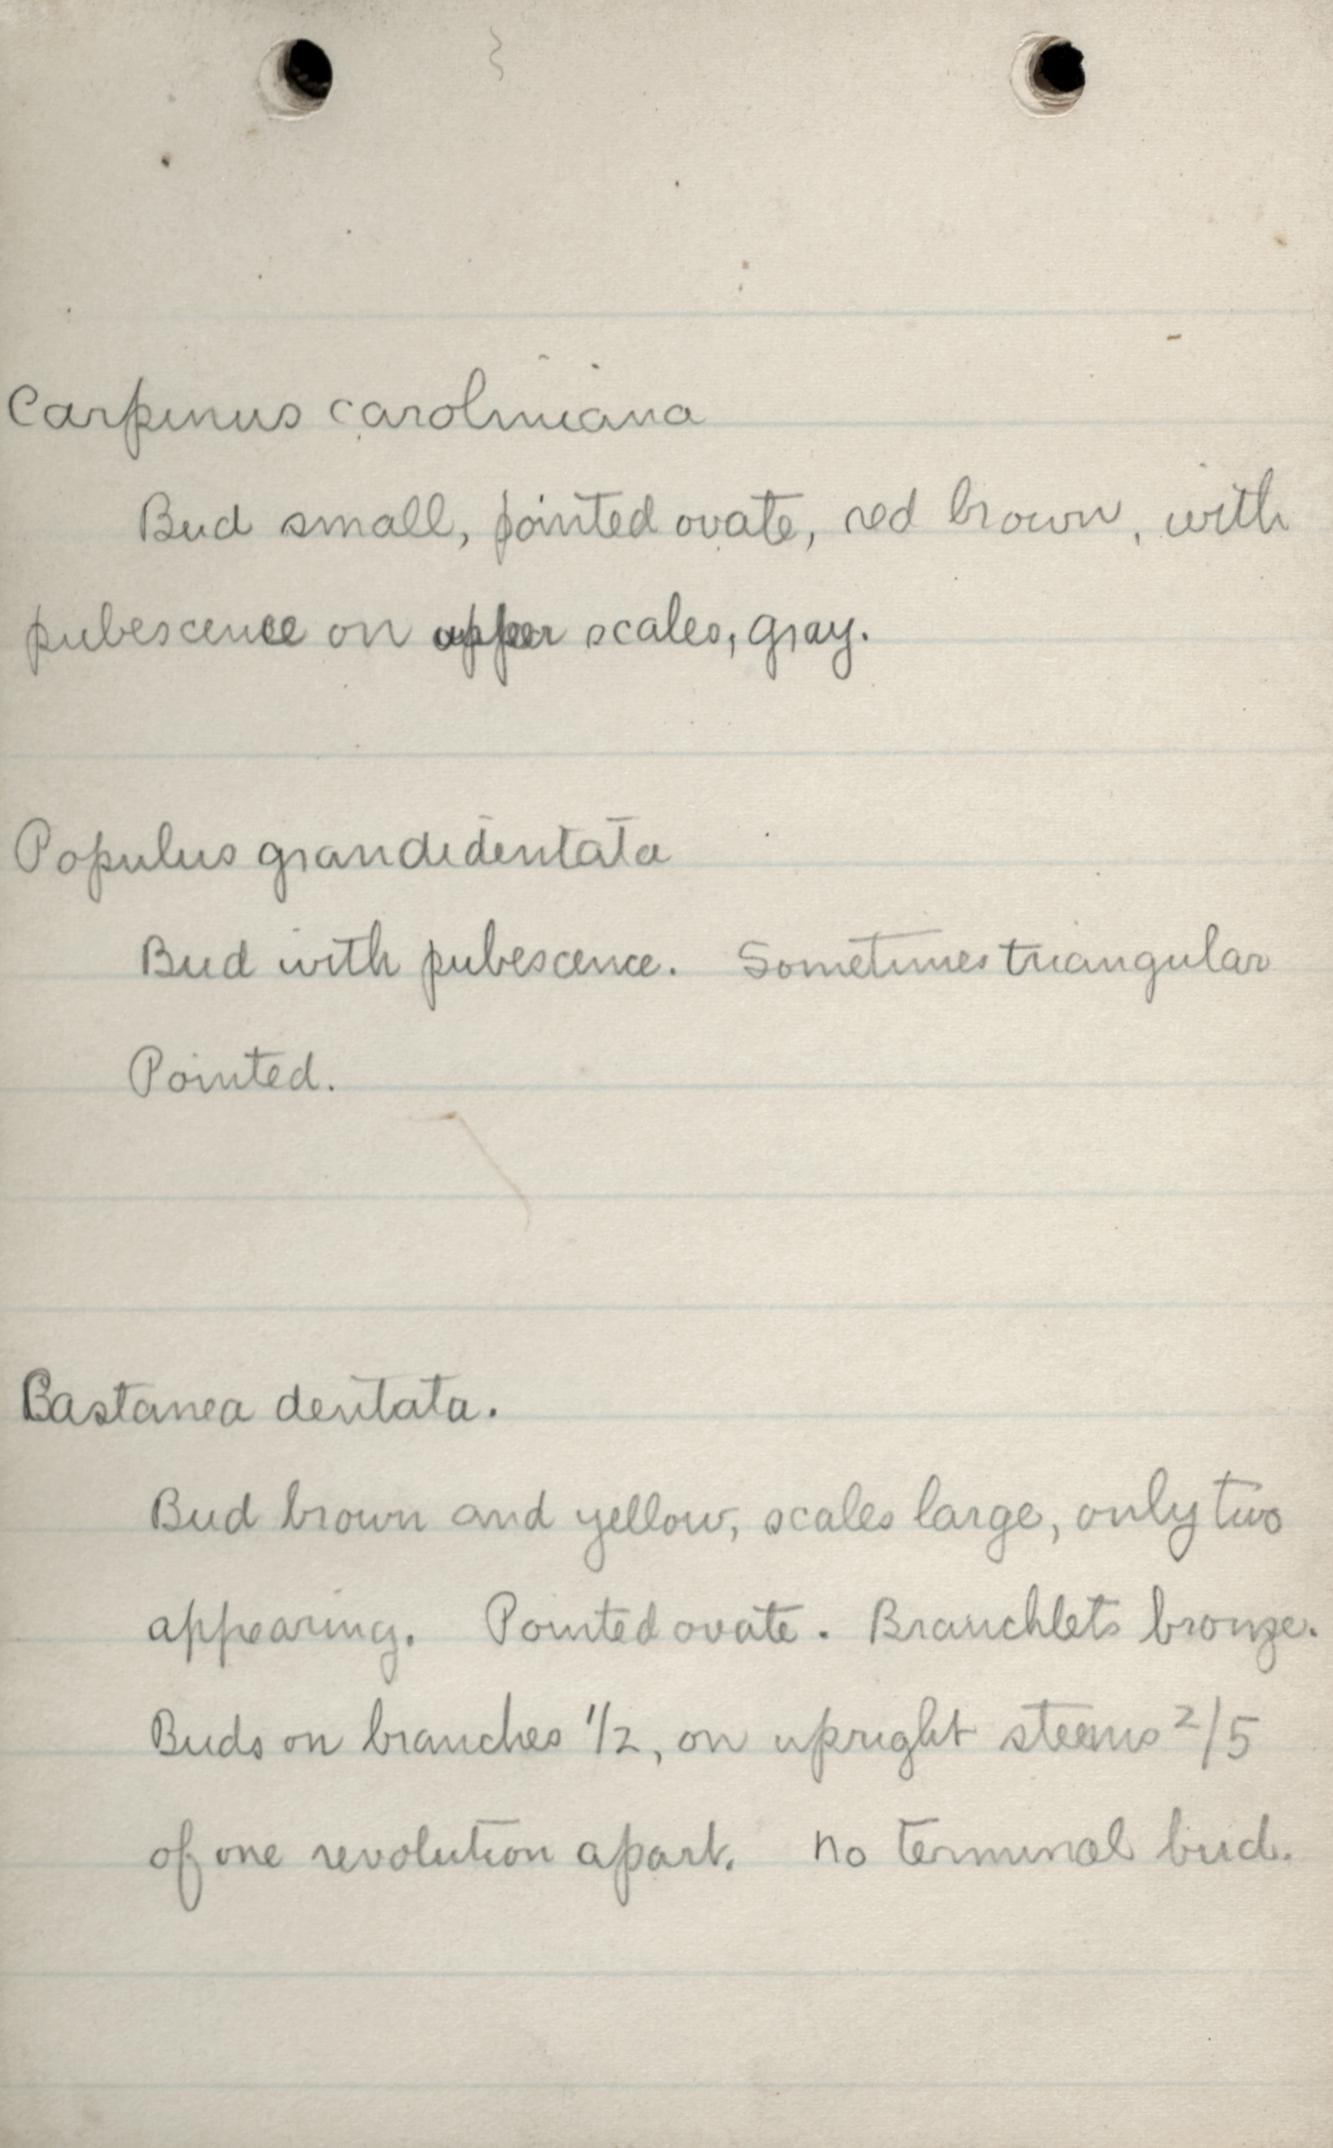 Carpinus caroliniana
Bud small, pointed ovate, red brown, with
pubescence on upper scales, gray.
Populus grandidentata
Bud with pubescence. Sometimes triangular
Pointed.
Castanea dentata.
Bud brown and yellow, scales large, only two
appearing. Pointed ovate. Branchlets bronze.
Buds on branches 1/2, on upright stems 2/5
of one revolution apart. No terminal bud.